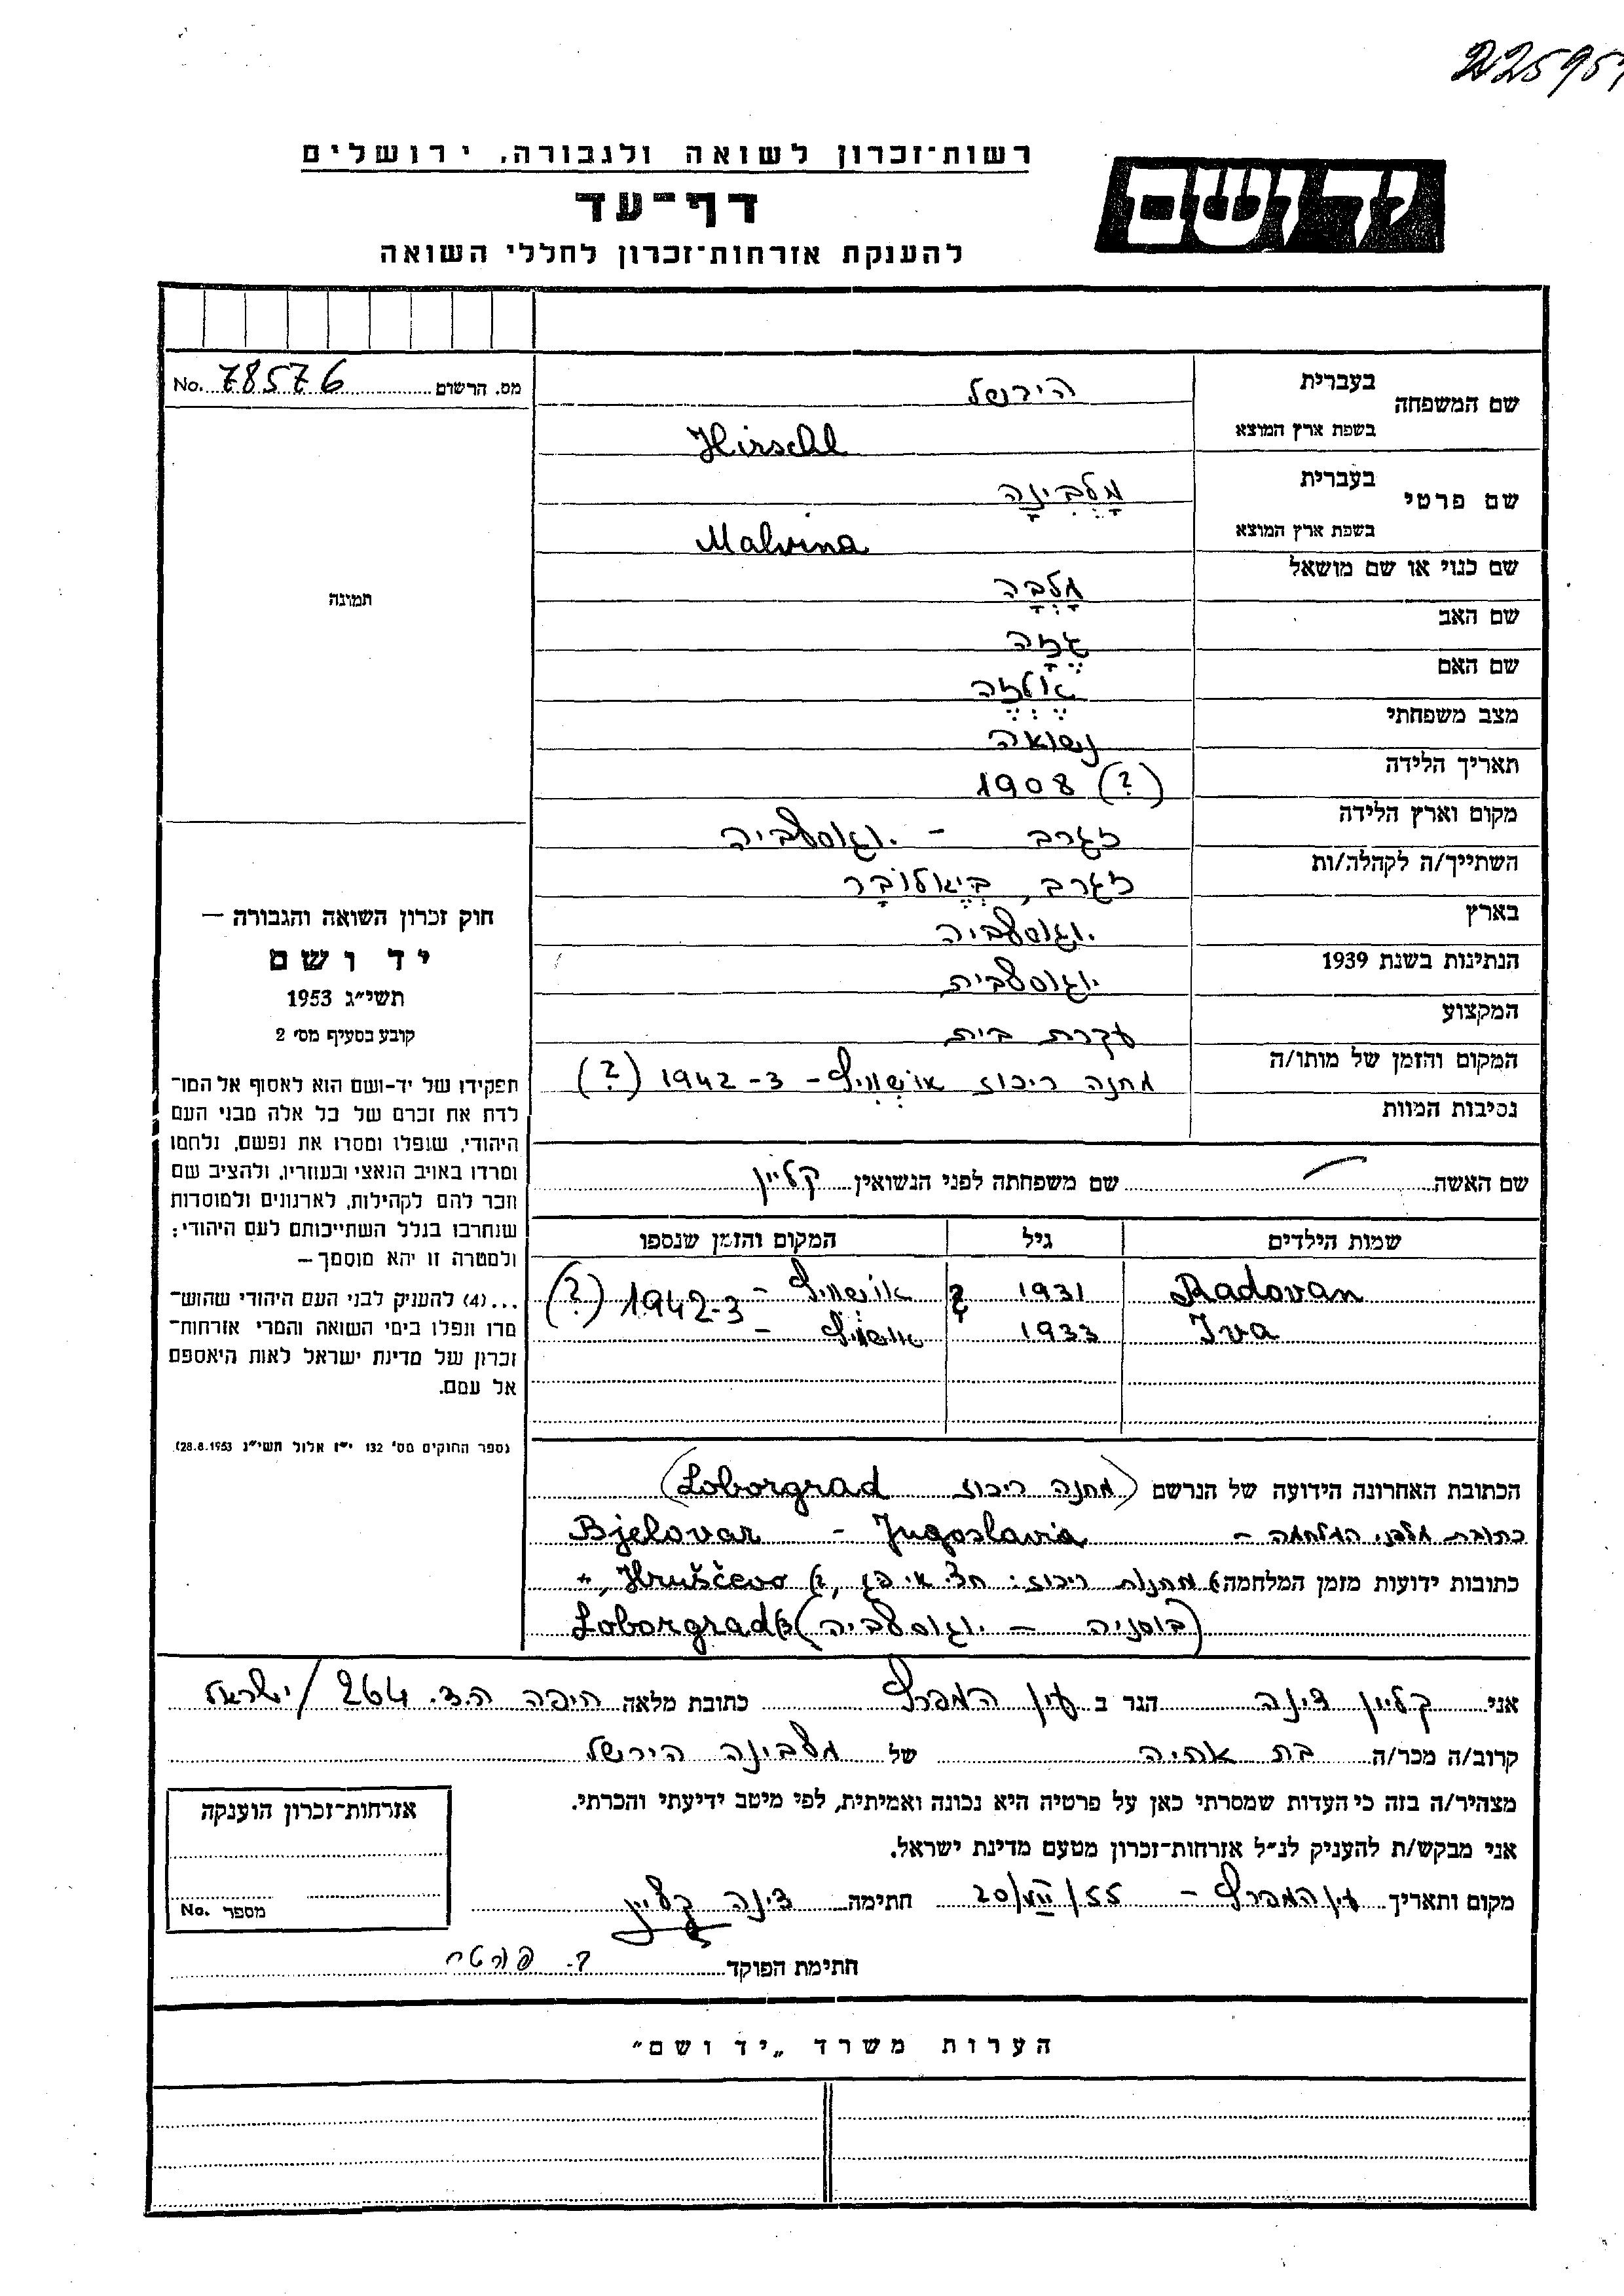 רשות־זכרון לשואה ולגבורה, ירושלים
ידושם
דף־עד
להענקת אזרחות־זכרון לחללי השואה
מס. הרשום No. 78576
שם המשפחה בעברית הירשל
בשפת ארץ המוצא Hirschl
שם פרטי בעברית מָלְבִינָה
בשפת ארץ המוצא Malvina
שם כנוי או שם מושאל מָלְבָּה
שם האב
שם האם
מצב משפחתי נשואה
תאריך הלידה 1908 (?)
מקום וארץ הלידה זגרב – יוגוסלביה
השתייך/ה לקהלה/ות זגרב, בְּיֶאלוֹבָר
בארץ יוגוסלביה
הנתינות בשנת 1939 יוגוסלבית
המקצוע עקרת בית
המקום והזמן של מותו/ה מחנה ריכוז אושוויץ – 1942-3 (?)
נסיבות המוות
שם האשה שם משפחתה לפני הנשואין קליין
שמות הילדים גיל המקום והזמן שנספו
Radovan 1931 אושוויץ – 1942-3 (?)
Iva 1933 אושוויץ –
הכתובת האחרונה הידועה של הנרשם (מחנה ריכוז Loborgrad)
כתובת מלפני המלחמה – Bjelovar – Jugoslavia
כתובות ידועות מזמן המלחמה מחנות ריכוז: Hruščevo
Loborgrad (בוסניה – יוגוסלביה)
אני קליין דינה הגר ב עין המפרץ כתובת מלאה חיפה ת.ד. 264 / ישראל
קרוב/ה מכר/ה בת אחיה של מלבינה הירשל
מצהיר/ה בזה כי העדות שמסרתי כאן על פרטיה היא נכונה ואמיתית, לפי מיטב ידיעתי והכרתי.
אני מבקש/ת להעניק לנ״ל אזרחות־זכרון מטעם מדינת ישראל.
מקום ותאריך עין המפרץ – 20/VII/55 חתימה דינה קליין
חתימת הפוקד
אזרחות־זכרון הוענקה
מספר No.
תמונה
חוק זכרון השואה והגבורה —
יד ושם
תשי״ג 1953
קובע בסעיף מס׳ 2
תפקידו של יד-ושם הוא לאסוף אל המו־
לדת את זכרם של כל אלה מבני העם
היהודי, שנפלו ומסרו את נפשם, נלחמו
ומרדו באויב הנאצי ובעוזריו, ולהציב שם
וזכר להם לקהילות, לארגונים ולמוסדות
שנחרבו בגלל השתייכותם לעם היהודי;
ולמטרה זו יהא מוסמך —
...(4) להעניק לבני העם היהודי שהוש־
מדו ונפלו בימי השואה והמרי אזרחות־
זכרון של מדינת ישראל לאות היאספם
אל עמם.
(ספר החוקים מס׳ 132 י״ז אלול תשי״ג 28.8.1953)
הערות משרד „יד ושם״